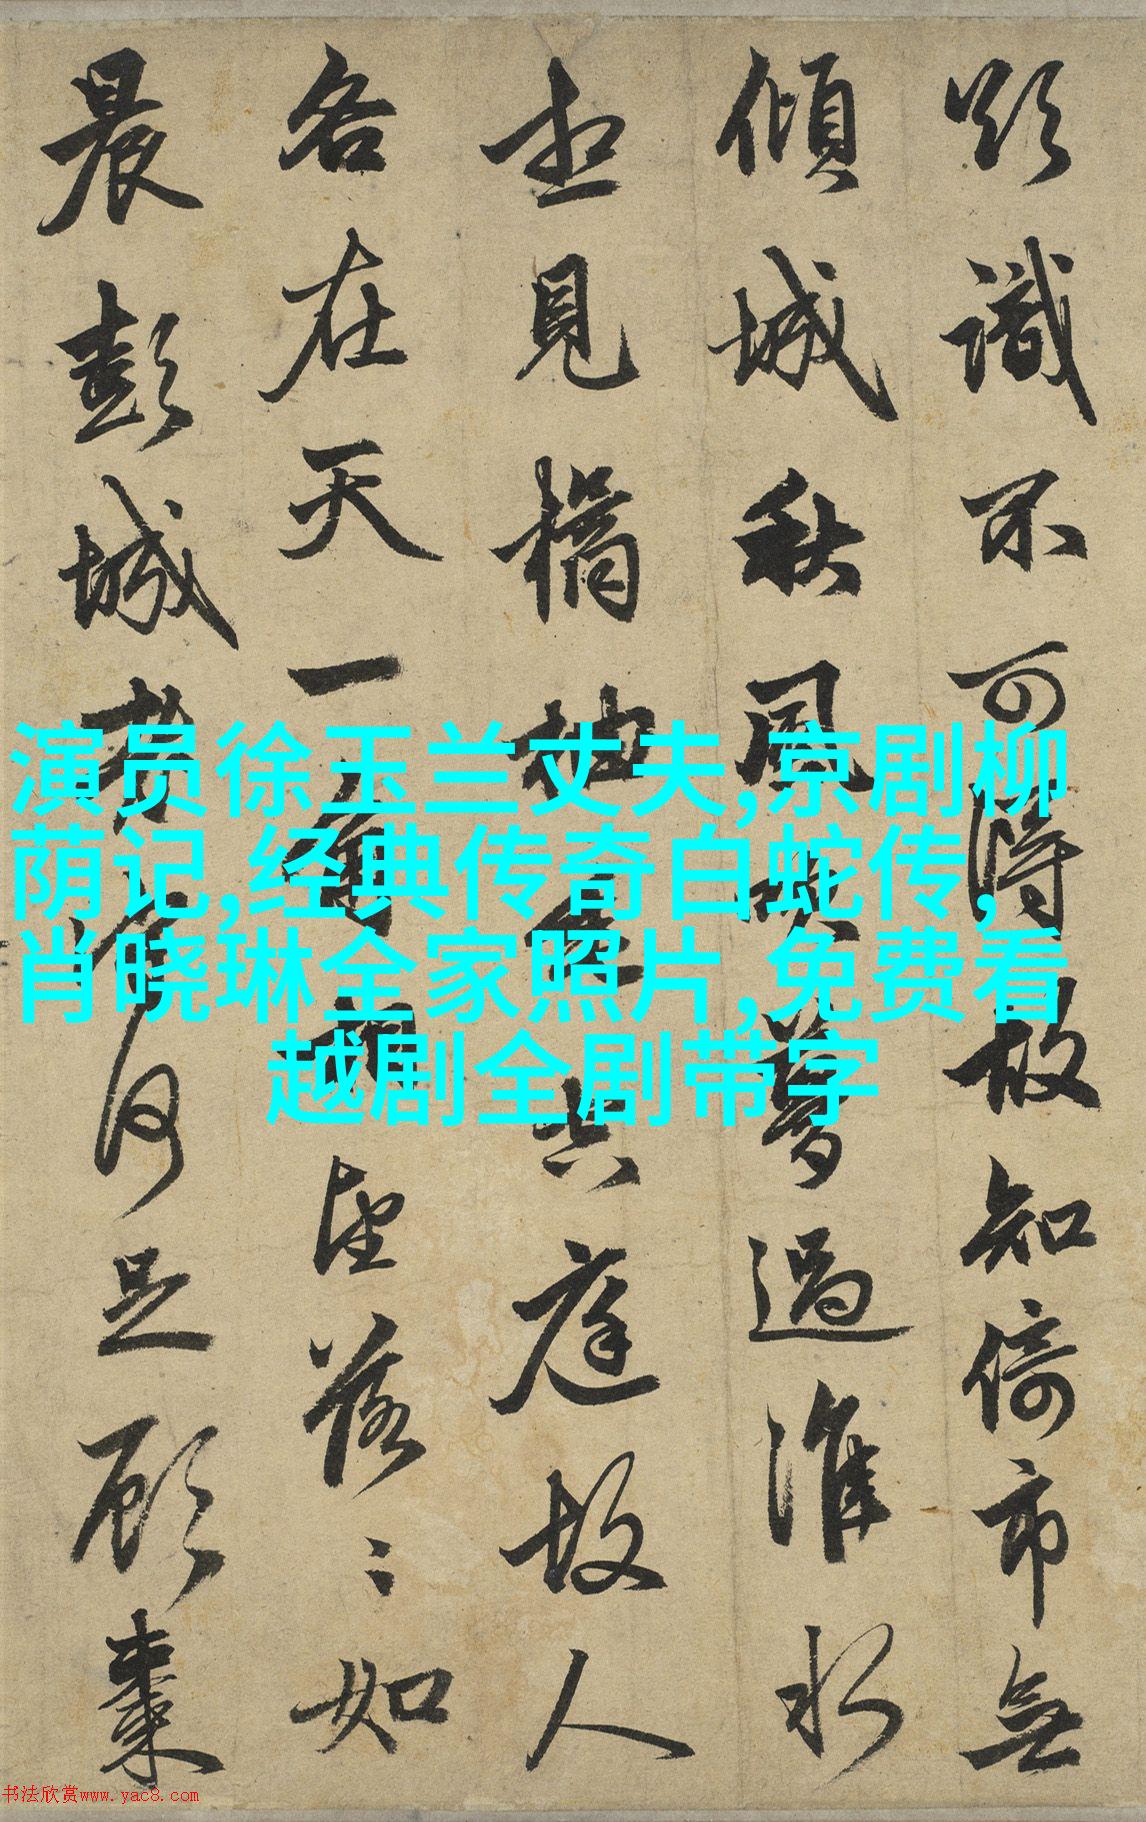 欲識不可得故知倚市無
傾城秋風吹夢過淮水
想見橘柚垂空庭故人
各在天一角相望落〻如
晨彭城老守何足顧棗
演员徐玉兰丈夫,京剧柳
荫记,经典传奇白蛇传,
肖晓琳全家照片,免费看
越剧全剧带字
书法欣赏www.yac8.com